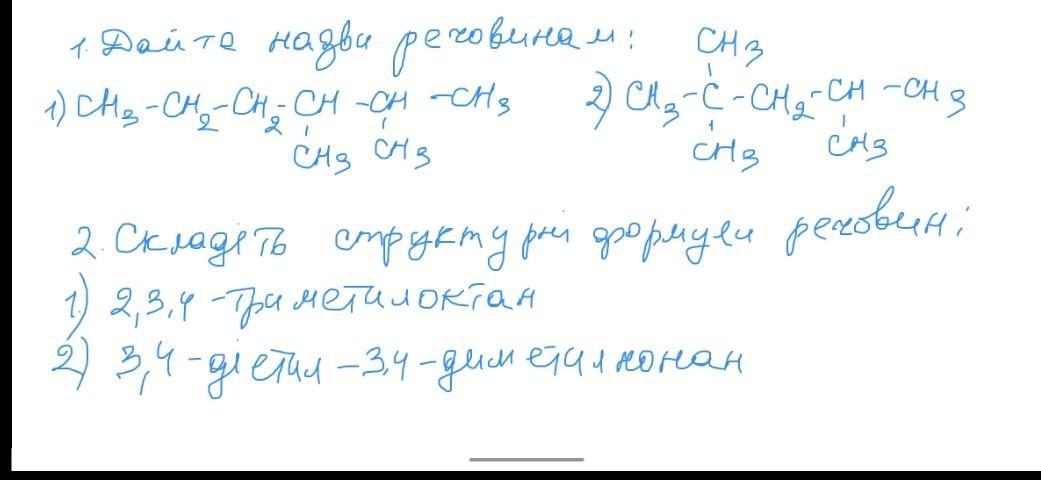 1. Дайте назви речовинам:
CH3
1) CH3-CH2-CH2-CH-CH-CH3
2) CH3-C-CH2-CH-CH3
CH3 CH3
CH3 CH3
2. Складіть структурні формули речовин:
1) 2,3,4-триметилоктан
2) 3,4-діетил-3,4-диметилнонан